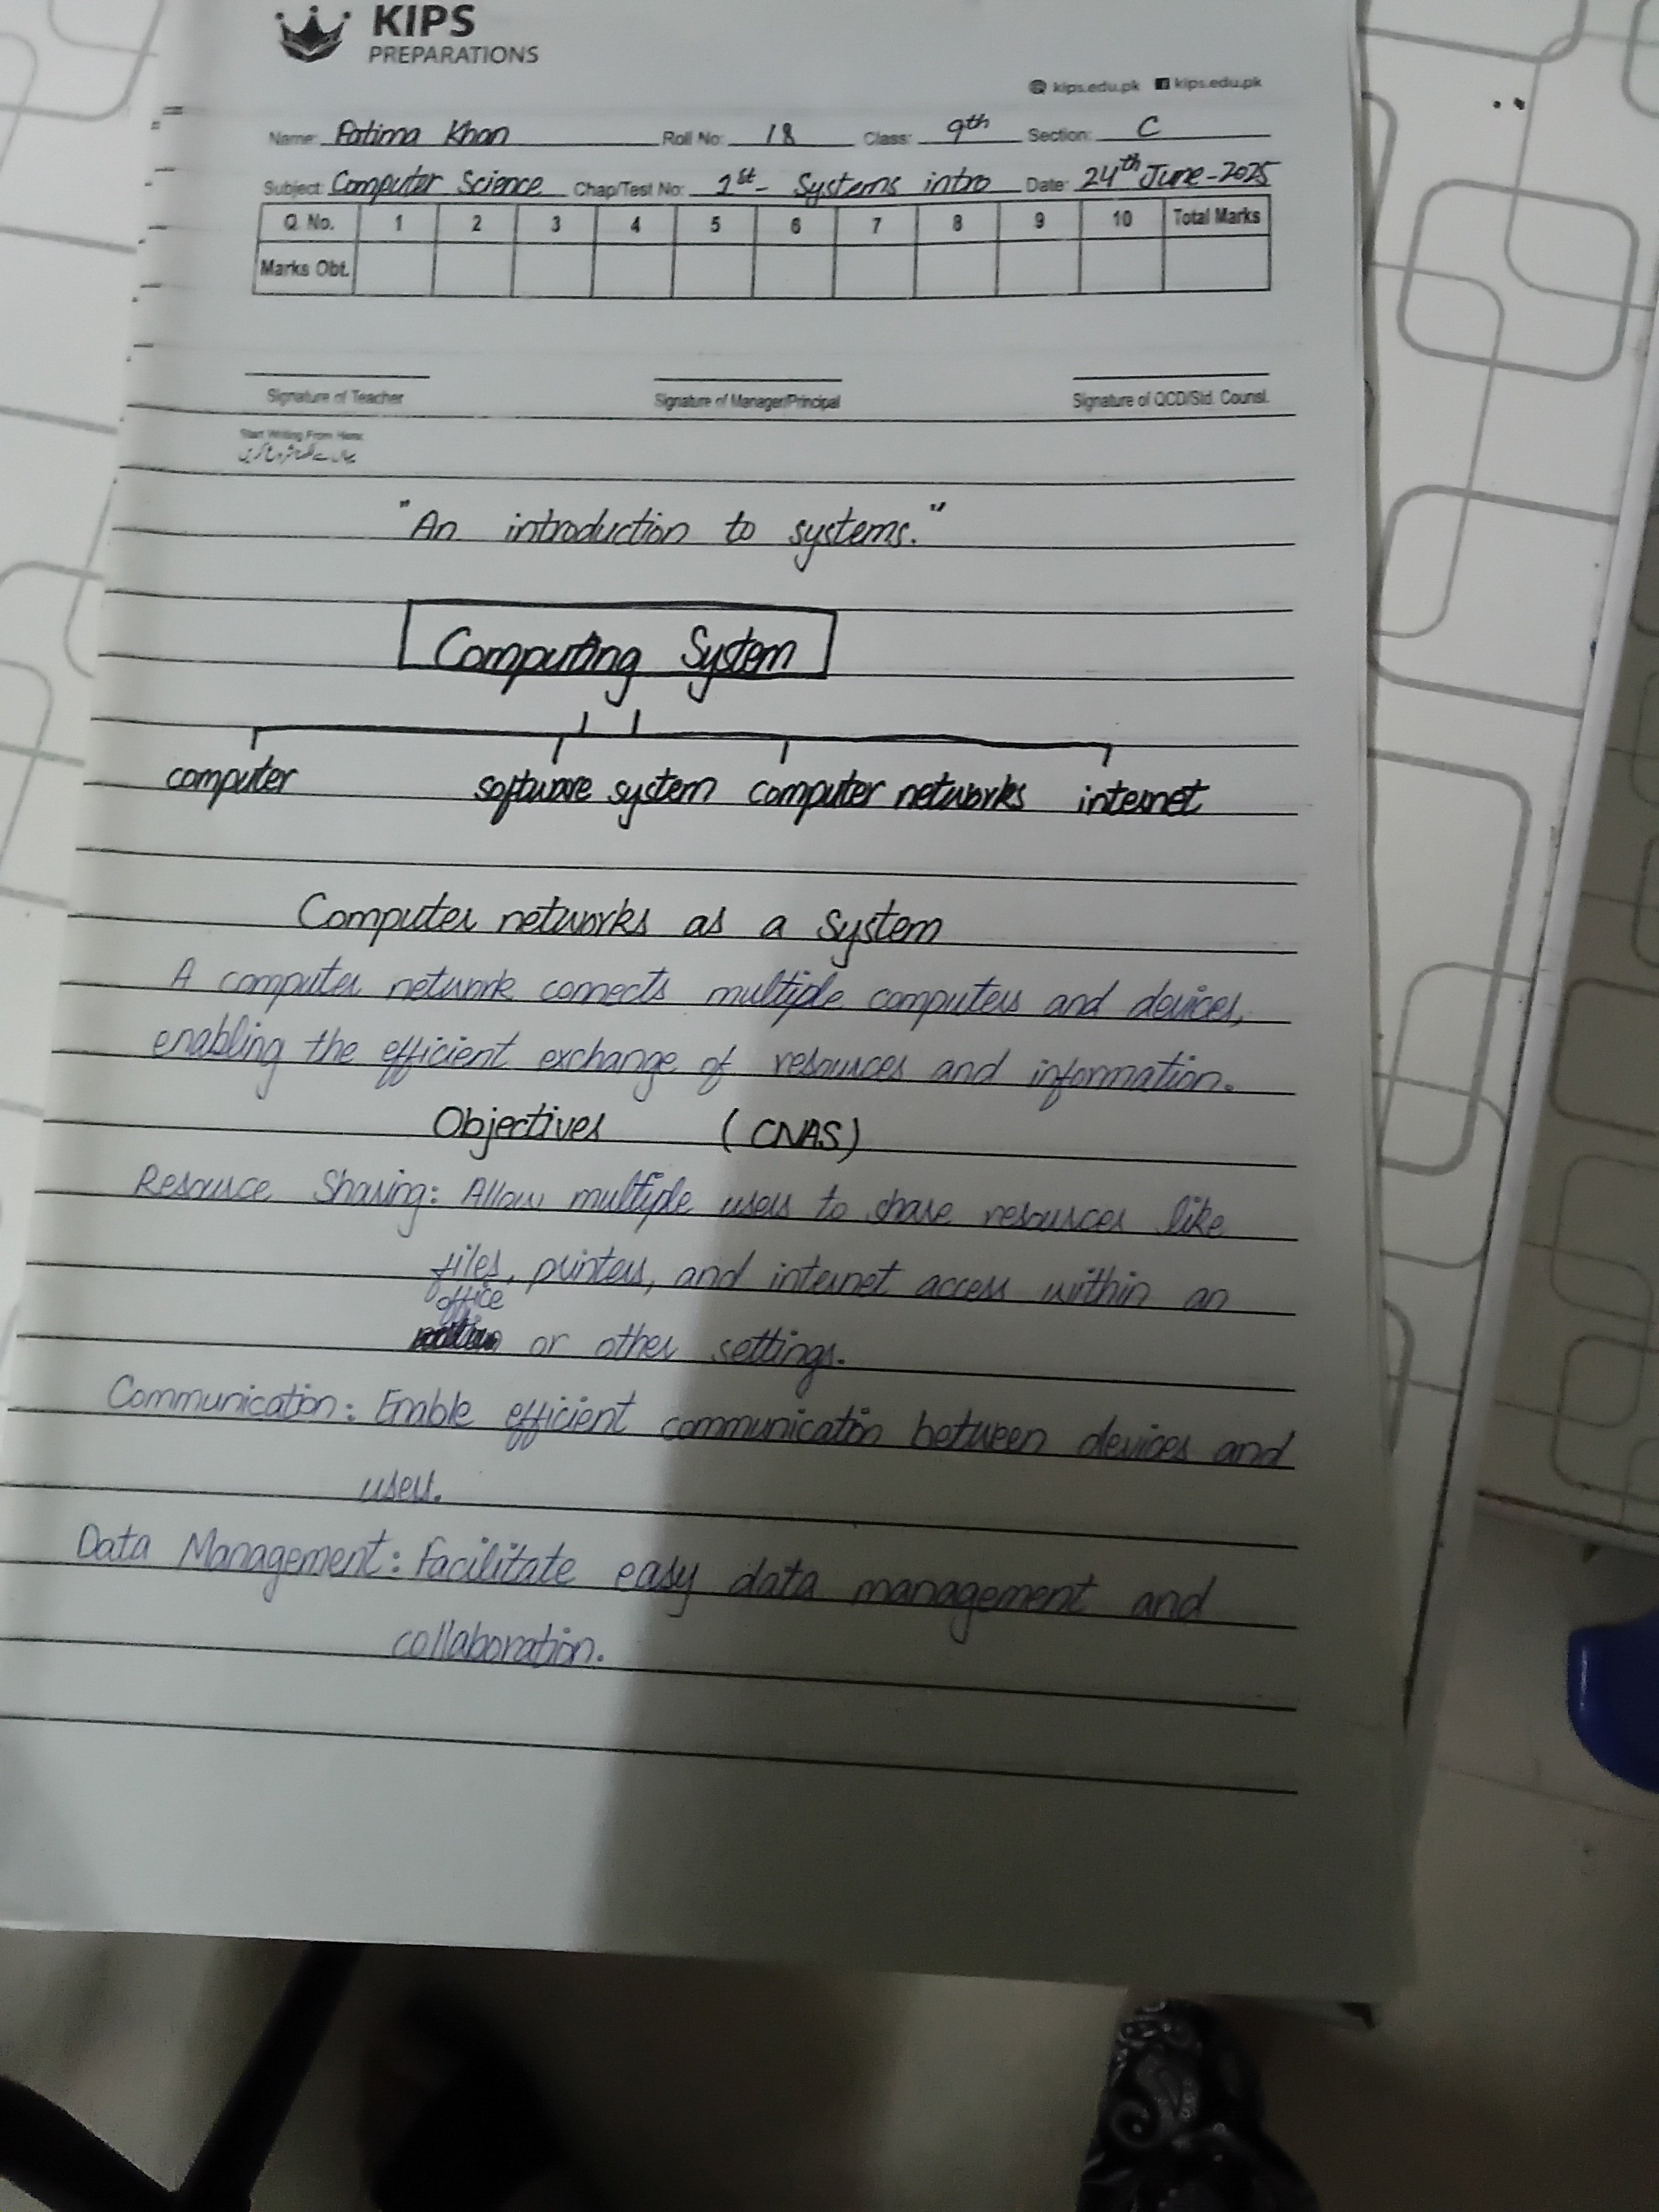 KIPS
PREPARATIONS
kips.edu.pk kips.edu.pk
Name: Fatima Khan Roll No: 18 Class: 9th Section: C
Subject: Computer Science Chap/Test No: 1st- Systems intro Date: 24th June-2025
Q. No. 1 2 3 4 5 6 7 8 9 10 Total Marks
Marks Obt.
Signature of Teacher Signature of Manager/Principal Signature of QCD/Std. Counsl.
Start Writing From Here:
یہاں سے لکھنا شروع کریں
"An introduction to systems."
Computing System
computer software system computer networks internet
Computer networks as a System
A computer network connects multiple computers and devices,
enabling the efficient exchange of resources and information.
Objectives (CNAS)
Resource Sharing: Allow multiple users to share resources like
files, printers, and internet access within an
office
or other settings.
Communication: Enable efficient communication between devices and
users.
Data Management: Facilitate easy data management and
collaboration.